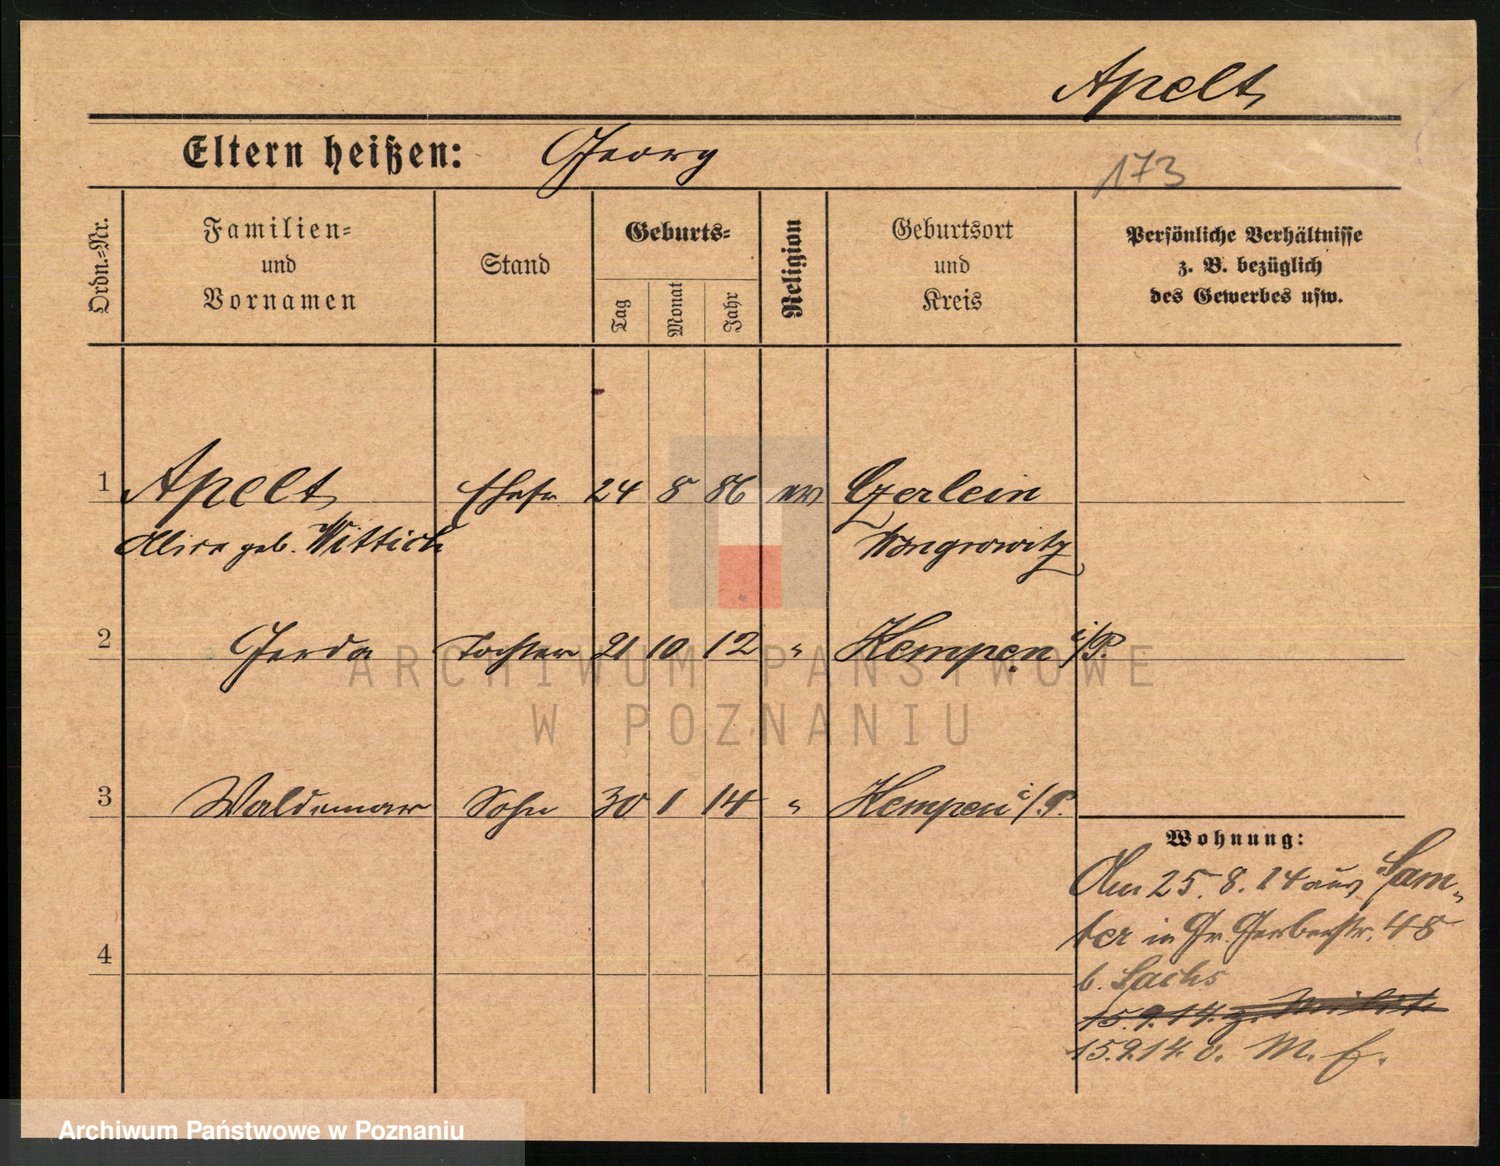 Apelt
Eltern heißen: Georg
173
Ordn.-Nr.
Familien-
und
Vornamen
Stand
Geburts-
Tag
Monat
Jahr
Religion
Geburtsort
und
Kreis
Persönliche Verhältnisse
z. B. bezüglich
des Gewerbes usw.
1 Apelt Ehefr. 24 8 86 ev Gerlein
geb. Wittich Wongrowitz
2 Gerda Tochter 21 10 12 " Kempen i/P.
ARCHIWUM PAŃSTWOWE
W POZNANIU
3 Waldemar Sohn 30 1 14 " Kempen i/P.
Wohnung:
Am 25.8.14 aus Sam-
ter in Gr. Gerberstr. 48
b. Sachs
4
15.9.14.
15.9.14. v. M. f.
Archiwum Państwowe w Poznaniu